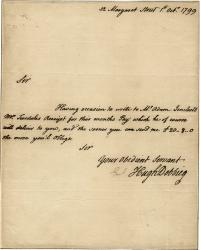 32 Margaret Street 1st Octr. 1799
Sir
Having occasion to write to Mr. Adam
Mr. Receipt for this months Pay which he of course
will deliver to you, and the sooner you can send me £20..8..0
the more you'll oblige
Sir
Your obedient Servant
Hugh